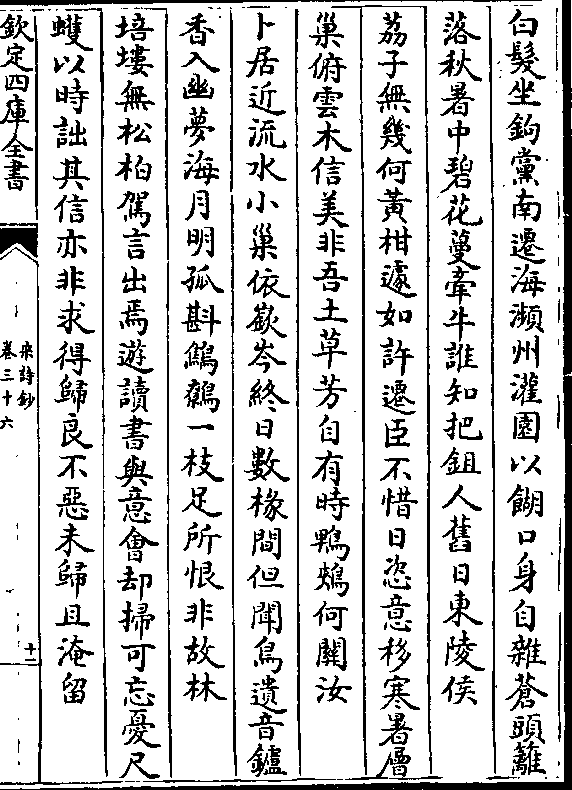 白髮坐鉤黨南遷海瀕州灌園以餬口身自雜蒼頭籬
落秋暑中碧花蔓牽牛誰知把鉏人舊日東陵侯
荔子無幾何黃柑遽如許遷臣不惜日恣意移寒暑層
巢俯雲木信美非吾土草芳自有時鶗鴂何關汝
卜居近流水小巢依嶔岑終日數椽間但聞鳥遺音鑪
香入幽夢海月明孤斟鷦鷯一枝足所恨非故林
培塿無松柏駕言出焉遊讀書與意會却掃可忘憂尺
蠖以時詘其信亦非求得歸良不惡未歸且淹留
欽定四庫全書
宋詩鈔
卷三十六
十二